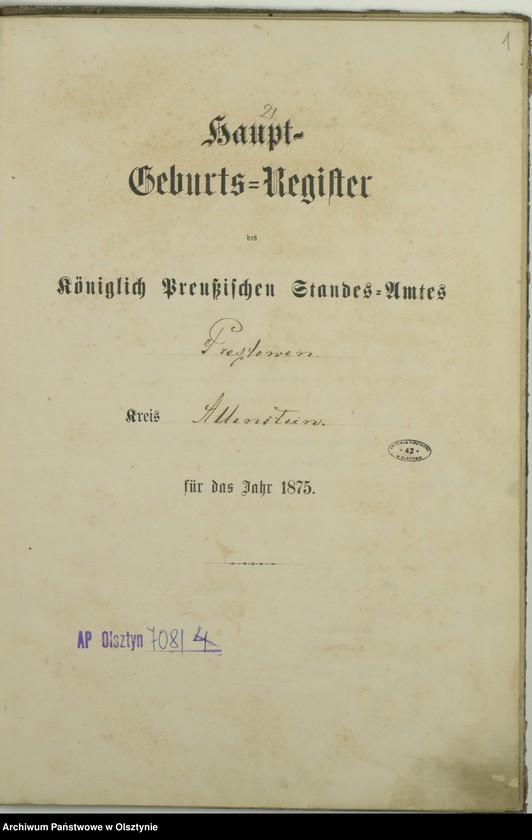 1
21
Haupt-
Geburts-Register
des
Königlich Preußischen Standes-Amtes
Preylowen
Kreis Allenstein.
für das Jahr 1875.
ARCHIWUM PAŃSTWOWE
* 42 *
W OLSZTYNIE
AP Olsztyn 708/4
Archiwum Państwowe w Olsztynie